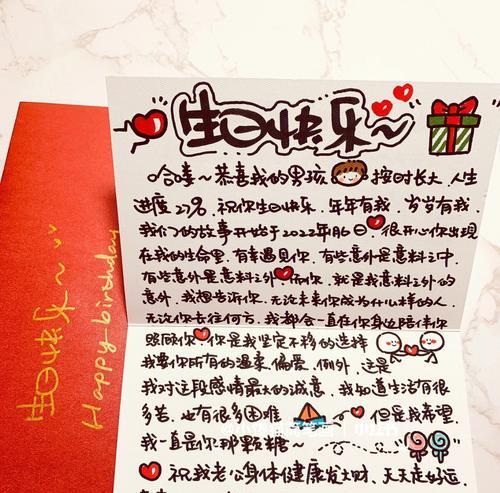 生日快乐~
哈喽~恭喜我的男孩 按时长大,人生
进度27%.祝你生日快乐.年年有我.岁岁有我.
我们的故事开始于2022年 6日.很开心你出现
在我的生命里.有幸遇见你.有些意外是意料之中.
有些意外是意料之外 而你.就是我意料之外的
意外.我想告诉你.无论未来你成为什么样的人.
无论你去往何方.我都会一直在你身边陪伴你
照顾你 你是我坚定不移的选择
我要你所有的温柔.偏爱.例外.这是
我对这段感情最大的诚意.我知道生活有很
多苦.也有很多困难 ~ 但是我希望.
我一直是你那颗糖~
祝我老公身体健康发大财.天天走好运.
生日快乐~
Happy birthday